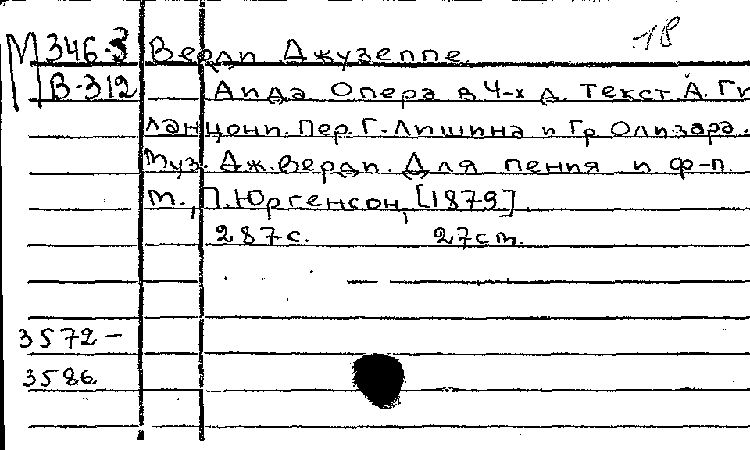 18
М 346-3 Верди Джузеппе.
В-312 Аида Опера в 4-х д. Текст А. Ги
ланцони. Пер. Г. Лишина и Гр Олизара.
Муз. Дж. Верди. Для пения и ф-п
М., П. Юргенсон, [1879]
287с. 27см.
3572-
3586